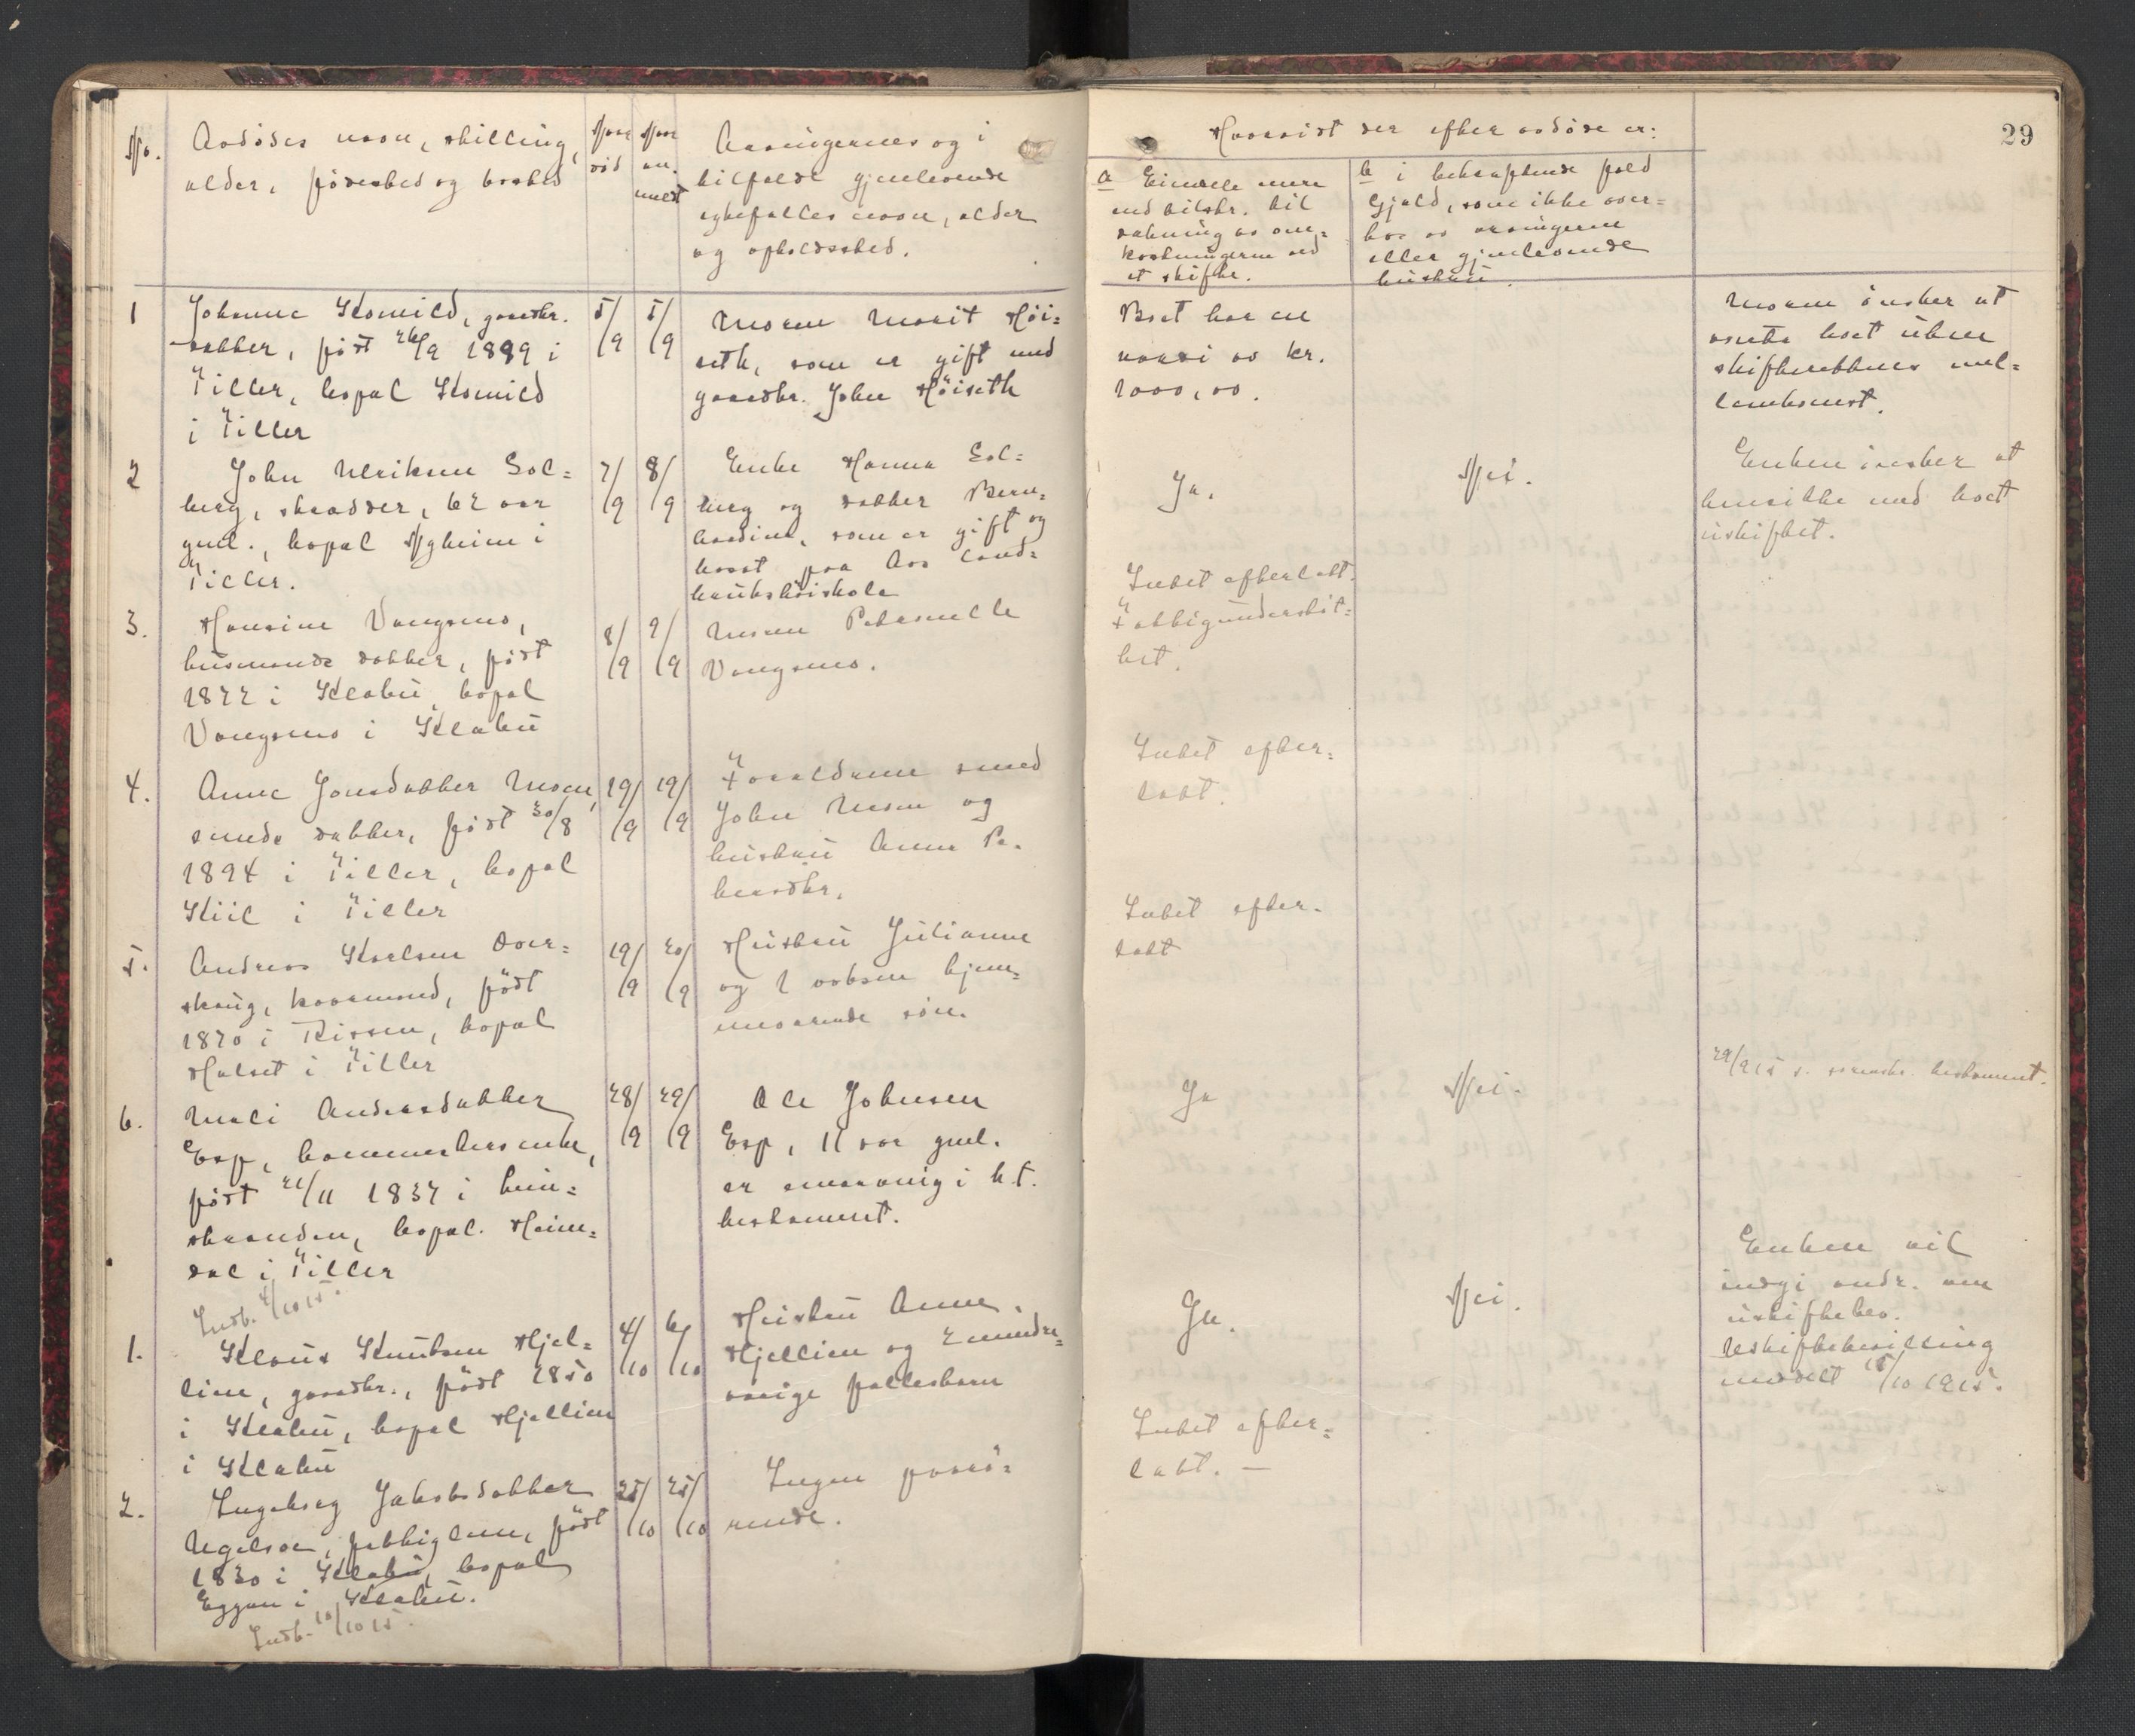 No.
Avdödes navn, stilling,
alder, födested og bosted
Naar
död
Naar
an-
meldt
Arvingernes og i
tilfælde gjenlevende
egtefælles navn, alder
og opholdssted.
Hvorvidt der efter avdöde er:
29
a Eiendele mere
end tilstr. til
dækning av om-
kostningerne ved
et skifte.
b i bekræftende fald
Gjæld, som ikke over-
tas av arvingerne
eller gjenlevende
hustru.
1
Johanne Kosvild, gaardbr.
datter, födt 26/9 1899 i
Tiller, bopæl Kosvild
i Tiller
5/9
5/9
Moren Marit Höi-
seth, som er gift med
gaardbr. John Höiseth
Boet har en
værdi av kr.
1000,00.
Moren önsker at
overta boet uten
skifterettens mel-
lemkomst.
2
John Ulriksen Sol-
berg, skrædder, 62 aar
gml., bopæl Nyheim i
Tiller.
7/9
8/9
Enke Hanna Sol-
berg og datter Bern-
hardine, som er gift og
bosat paa Aas Land-
brukshöiskole
Ja.
Nei.
Enken önsker at
hensitte med boet
uskiftet.
3.
Hansine Vangsmo,
husmands datter, födt
1877 i Klæbu, bopæl
Vangsmo i Klæbu
8/9
9/9
Moren Peternelle
Vangsmo.
Intet efterlatt.
Fattigunderstöt-
tet.
4.
Anne Jonsdatter Moen,
smeds datter, födt 30/8
1894 i Tiller, bopæl
Kiil i Tiller
19/9
19/9
Forældrene smed
John Moen og
hustru Anne Pe-
dersdtr.
Intet efter-
latt.
5.
Andreas Karlsen Over-
skaug, kaarmand, födt
1870 i Rissen, bopæl
Halset i Tiller
19/9
20/9
Hustru Julianne
og 1 voksen hjem-
meværende sön.
Intet efter-
latt
6.
Mali Andersdatter
Esp, tömmermands enke,
födt 21/11 1837 i Lein-
stranden, bopæl Heim-
dal i Tiller
Indb. 4/10 15.
28/9
29/9
Ole Johnsen
Esp, 11 aar gml.
er enearving i h.t.
testament.
Ja
Nei.
29/9 15 s. testament.
1.
Klaus Knutsen Hjel-
lien, gaardbr., födt 1850
i Klæbu, bopæl Hjellien
i Klæbu
4/10
6/10
Hustru Anne
Hjellien og 2 mynda-
arige fællesbarn
Ja.
Nei.
Enken vil
indgi andr. om
uskiftebev.
Uskiftebevilling
meddelt 15/10 1915.
2.
Ingeborg Jakobsdatter
Ugelsoe, fattiglem, födt
1830 i Klæbu, bopæl
Eggen i Klæbu.
Indb. 10/10 15.
25/10
25/10
Ingen paarö-
rende.
Intet efter-
latt. —